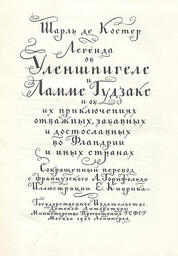 Шарль де Костер
Легенда
об
Уленшпигеле
и
Ламме Гудзаке
и об
их приключениях
отважных, забавных
и достославных
во Фландрии
и иных странах
Сокращенный перевод
с французского А. Горнфельда
Иллюстрации Е. Кибрика
Государственное Издательство
Детской Литературы
Министерства Просвещения РСФСР
Москва Ленинград